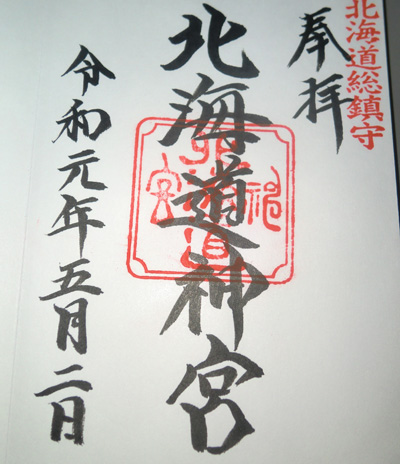 北海道総鎮守
奉拝
北海道神宮
令和元年五月二日